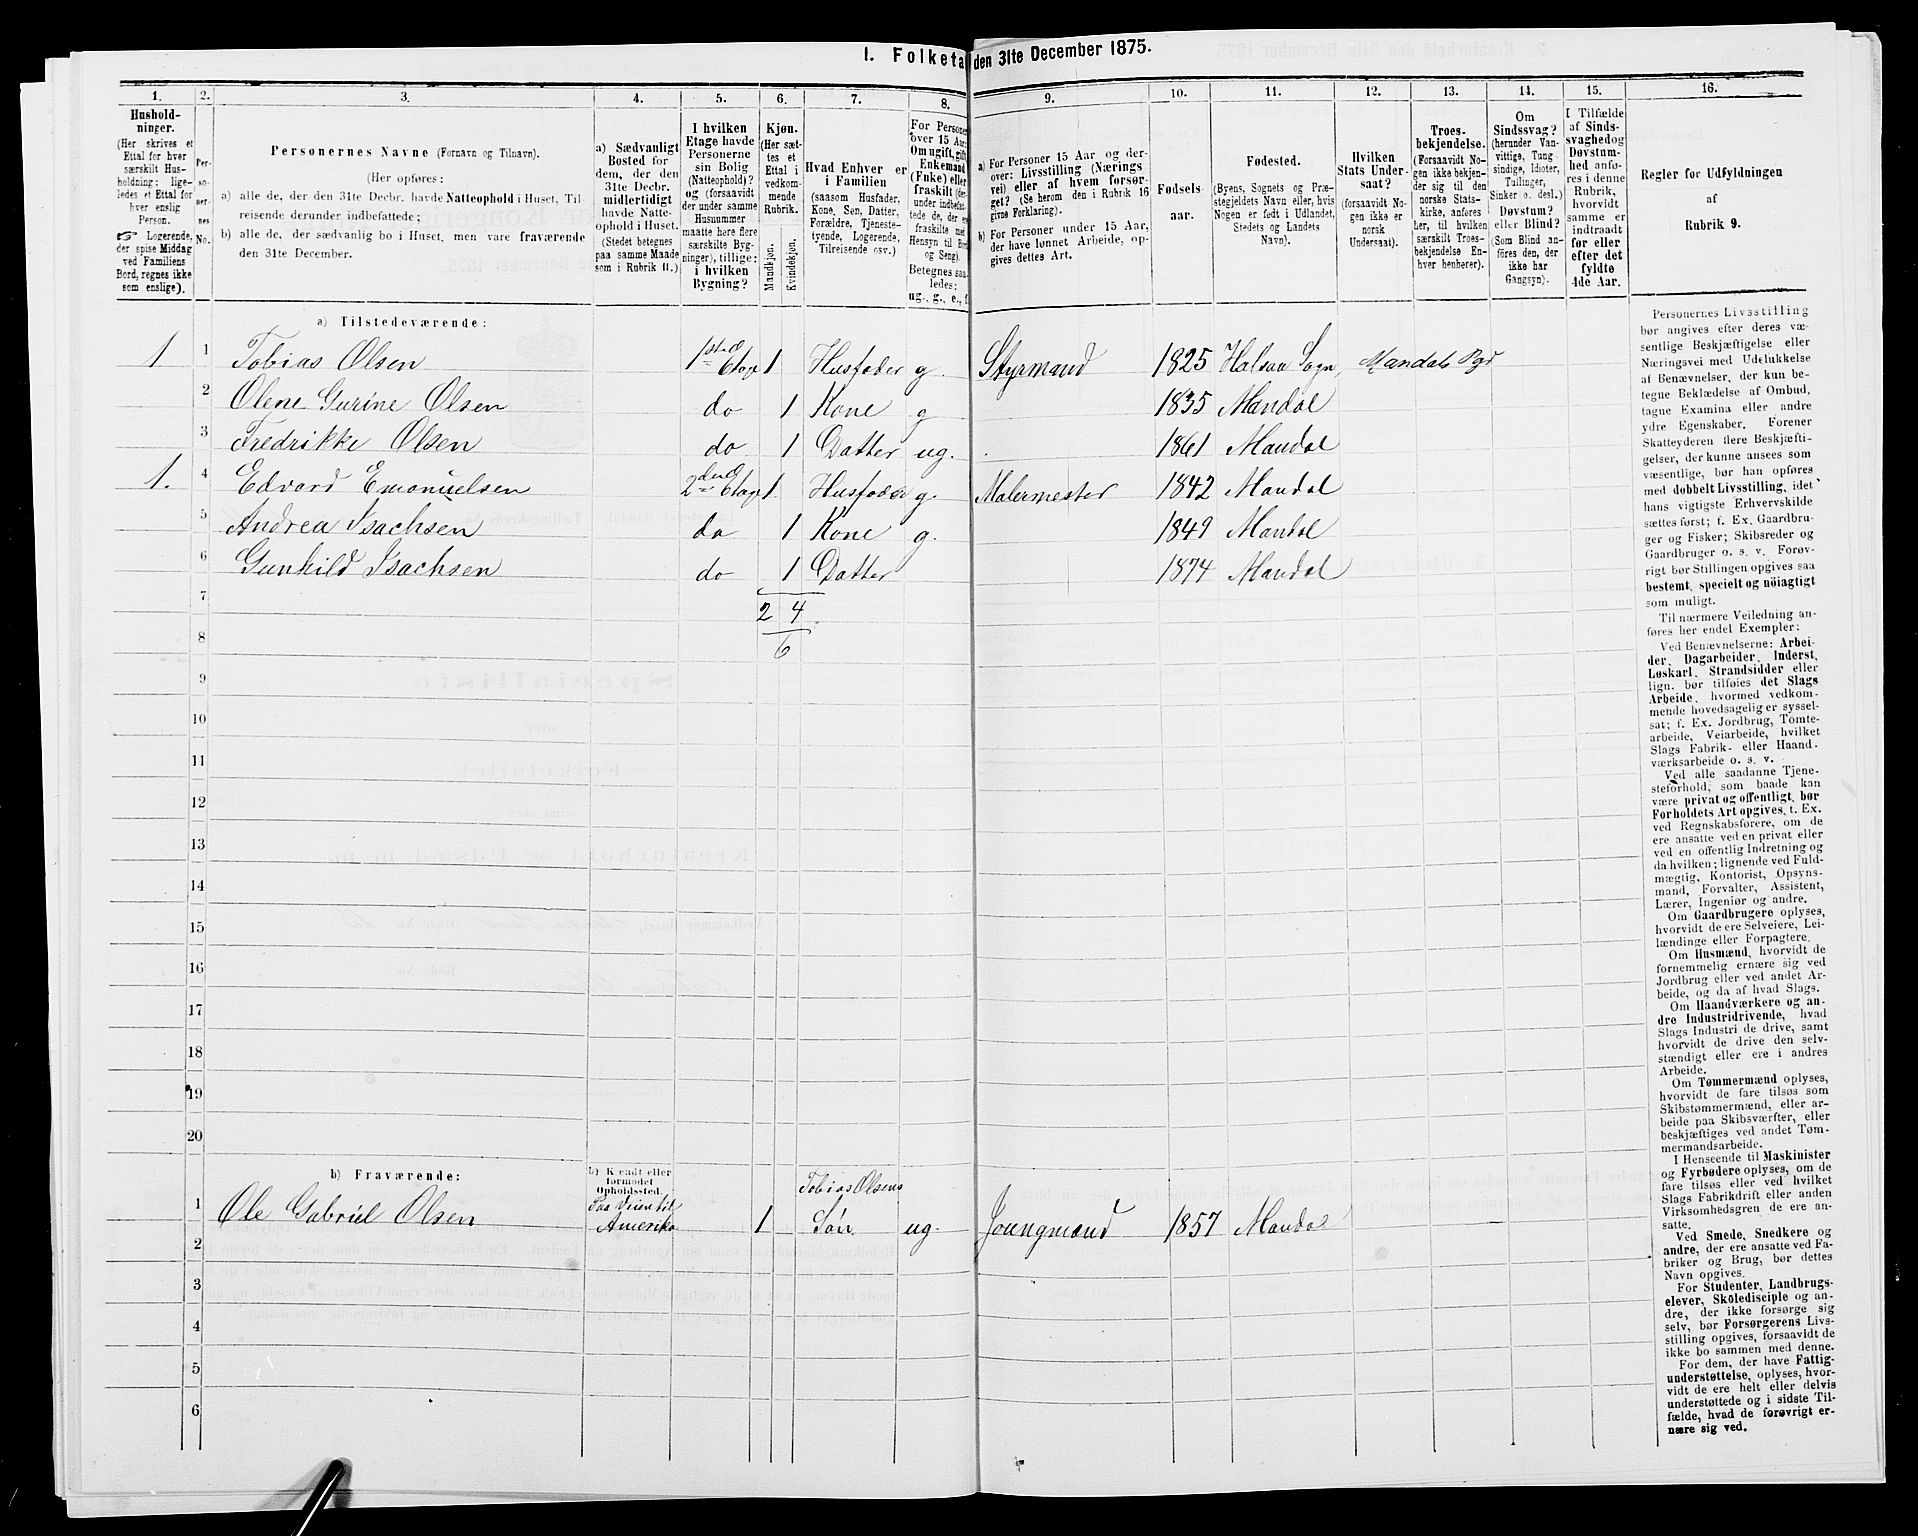 1. Folketa den 31te December 1875.
1. 2. 3. 4. 5. 6. 7. 8. 9. 10. 11. 12. 13. 14. 15. 16.
Hushold-
ninger.
(Her skrives et
Ettal for hver
særskilt Hus-
holdning; lige-
ledes et Ettal for
hver enslig
Person.
☞ Logerende,
der spise Middag
ved Familiens
Bord, regnes ikke
som enslige).
Per-
so-
ner-
nes
No.
Personernes Navne (Fornavn og Tilnavn).
(Her opføres:
a) alle de, der den 31te Decbr. havde Natteophold i Huset, Til-
reisende derunder indbefattede;
b) alle de, der sædvanlig bo i Huset, men vare fraværende
den 31te December.
a) Sædvanligt
Bosted for
dem, der den
31te Decbr.
midlertidigt
havde Natte-
ophold i Huset.
(Stedet betegnes
paa samme Maade
som i Rubrik 11.)
I hvilken
Etage havde
Personerne
sin Bolig
(Natteophold)?
og (forsaavidt
der under samme
Husnummer
maatte høre flere
særskilte Byg-
ninger), tillige:
i hvilken
Bygning?
Kjøn.
(Her sæt-
tes et
Ettal i
vedkom-
mende
Rubrik.
Mandkjøn.
Kvindekjøn.
Hvad Enhver er
i Familien
(saasom Husfader,
Kone, Søn, Datter,
Forældre, Tjeneste-
tyende, Logerende,
Tilreisende osv.)
For Personer
over 15 Aar:
Om ugift, gift,
Enkemand
(Enke) eller
fraskilt (der-
under indbefat-
tede de, der ere
fraskilte med
Hensyn til Bord
og Seng).
Betegnes saa-
ledes:
ug., g., e., f.
a) For Personer 15 Aar og der-
over: Livsstilling (Nærings-
vei) eller af hvem forsør-
get? (Se herom den i Rubrik 16
givne Forklaring).
b) For Personer under 15 Aar,
der have lønnet Arbeide, op-
gives dettes Art.
Fødsels-
aar.
Fødested.
(Byens, Sognets og Præ-
stegjeldets Navn eller, hvis
Nogen er født i Udlandet,
Stedets og Landets
Navn).
Hvilken
Stats Under-
saat?
(forsaavidt No-
gen ikke er
norsk
Undersaat).
Troes-
bekjendelse.
(Forsaavidt No-
gen ikke bekjen-
der sig til den
norske Stats-
kirke, anføres
her, til hvilken
særskilt Troes-
bekjendelse En-
hver henhører).
Om
Sindssvag?
(herunder Van-
vittige, Tung-
sindige, Idioter,
Tullinger,
Sinker o. desl.)
Døvstum?
eller Blind?
(Som Blind an-
føres den, der
ikke har
Gangsyn).
I Tilfælde
af Sinds-
svaghed og
Døvstum-
hed anfø-
res i denne
Rubrik,
hvorvidt
samme er
indtraadt
før eller
efter det
fyldte
4de Aar.
Regler for Udfyldningen
af
Rubrik 9.
a) Tilstedeværende:
1 1 Tobias Olsen 1ste Etage 1 Husfader g. Styrmand 1825 Halsaa Sogn, Mandals Pgd
2 Olene Gurine Olsen do 1 Kone g 1835 Mandal
3 Fredrikke Olsen do 1 Datter ug. 1861 Mandal
1. 4 Edvard Emanuelsen 2den Etage 1 Husfader g. Malermester 1842 Mandal
5 Andrea Isachsen do 1 Kone g. 1849 Mandal
6 Gunhild Isachsen do 1 Datter 1874 Mandal
7 2 4
8 6
9
10
11
12
13
14
15
16
17
18
19
20
b) Fraværende:
b) Kjendt eller
formodet
Opholdssted.
1 Ole Gabriel Olsen Paa Veien til Amerika 1 Tobias Olsens Søn ug. Joungmand 1857 Mandal
2
3
4
5
6
Personernes Livsstilling
bør angives efter deres væ-
sentlige Beskjæftigelse eller
Næringsvei med Udelukkelse
af Benævnelser, der kun be-
tegne Beklædelse af Ombud,
tagne Examina eller andre
ydre Egenskaber. Forener
Skatteyderen flere Beskjæfti-
gelser, der kunne ansees som
væsentlige, bør han opføres
med dobbelt Livsstilling, idet
hans vigtigste Erhvervskilde
sættes først; f. Ex. Gaardbru-
ger og Fisker; Skibsreder og
Gaardbruger o. s. v. Forøv-
rigt bør Stillingen opgives saa
bestemt, specielt og nöiagtigt
som muligt.
Til nærmere Veiledning an-
føres her endel Exempler:
Ved Benævnelserne: Arbei-
der, Dagarbeider, Inderst,
Løskarl, Strandsidder eller
lign. bør tilføies det Slags
Arbeide, hvormed vedkom-
mende hovedsagelig er syssel-
sat; f. Ex. Jordbrug, Tømte-
arbeide, Veiarbeide, hvilket
Slags Fabrik- eller Haand-
værksarbeide o. s. v.
Ved alle saadanne Tjene-
steforhold, som baade kan
være privat og offentligt, bør
Forholdets Art opgives, t. Ex.
ved Regnskabsførere, om de
ere ansatte ved en privat eller
ved en offentlig Indretning og
da hvilken; lignende ved Fuld-
mægtig, Kontorist, Opsyns-
mand, Forvalter, Assistent,
Lærer, Ingeniør og andre.
Om Gaardbrugere oplyses,
hvorvidt de ere Selveiere, Lei-
lændinge eller Forpagtere.
Om Husmænd, hvorvidt de
fornemmelig ernære sig ved
Jordbrug eller ved andet Ar-
beide, og da af hvad Slags.
Om Haandværkere og an-
dre Industridrivende, hvad
Slags Industri de drive, samt
hvorvidt de drive den selv-
stændigt eller ere i andres
Arbeide.
Om Tømmermænd oplyses,
hvorvidt de fare tilsøs som
Skibstømmermænd, eller ar-
beide paa Skibsværfter, eller
beskjæftiges ved andet Tøm-
mermandsarbeide.
I Henseende til Maskinister
og Fyrbødere oplyses, om de
fare tilsøs eller ved hvilket
Slags Fabrikdrift eller anden
Virksomhedsgren de ere an-
satte.
Ved Smede, Snedkere og
andre, der ere ansatte ved Fa-
briker og Brug, bør dettes
Navn opgives.
For Studenter, Landbrugs-
elever, Skoledisciple og an-
dre, der ikke forsørge sig
selv, bør Forsørgerens Livs-
stilling opgives, forsaavidt de
ikke bo sammen med denne.
For dem, der have Fattig-
understøttelse, oplyses, hvor-
vidt de ere helt eller delvis
understøttede og i sidste Til-
fælde, hvad de forøvrigt er-
nære sig ved.